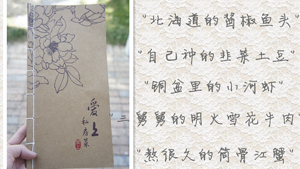 爱上
私房菜
"三
"北海道的酱椒鱼头
"自己种的韭菜土豆"
"铜盆里的小河虾"
舅舅的明火雪花牛肉"
"熬很久的筒骨江蟹"